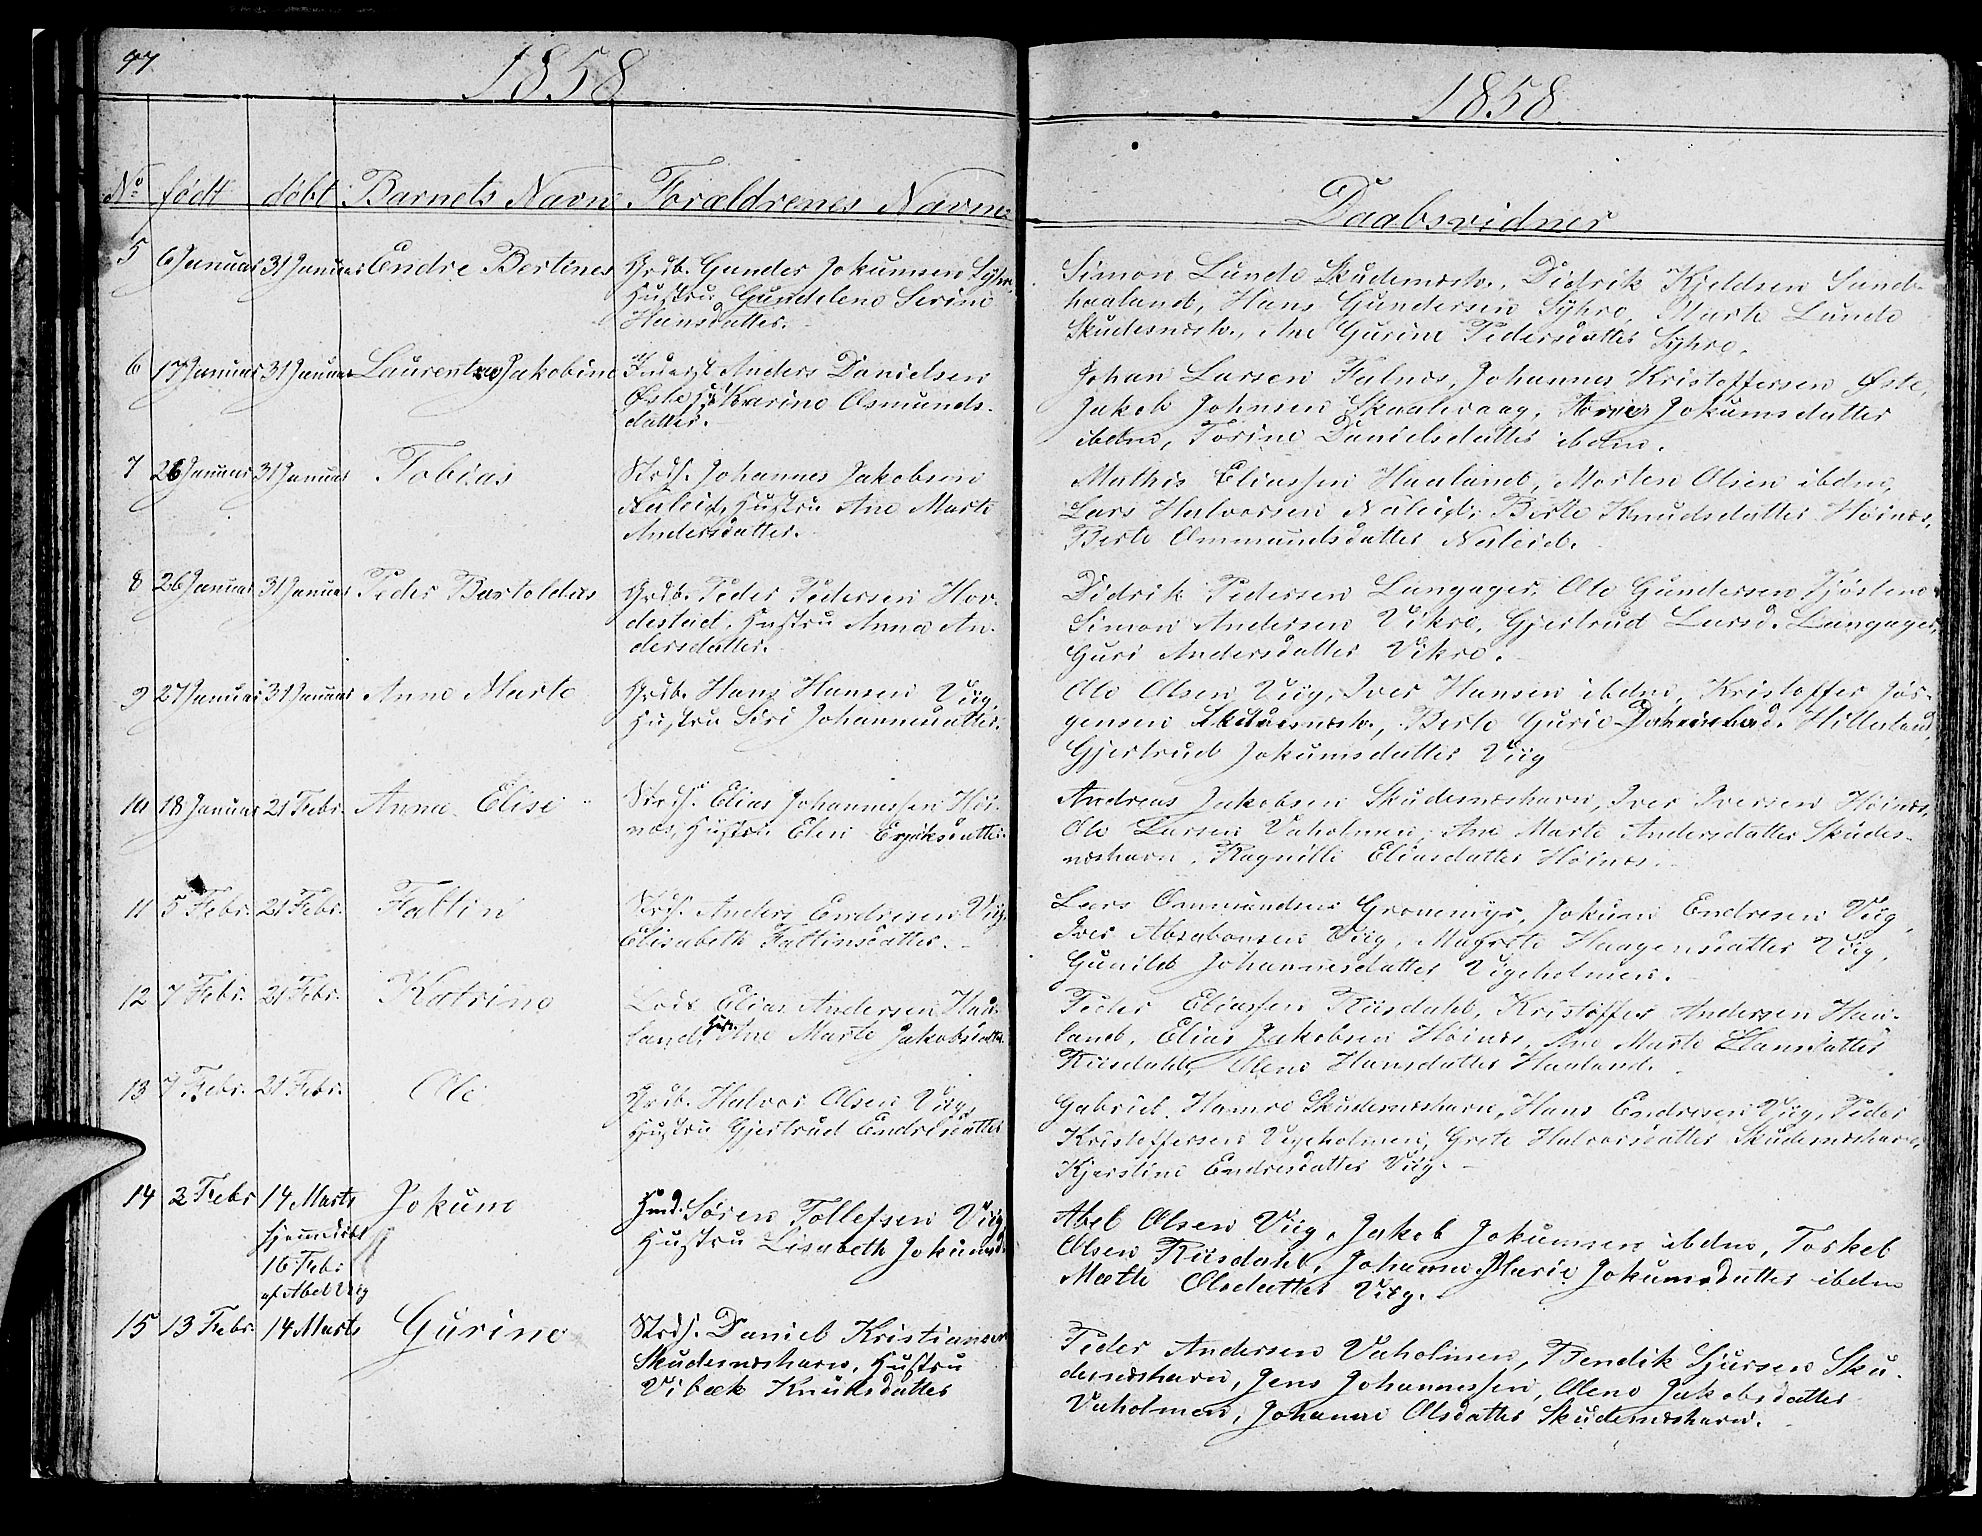 97
1858
No født døbt Barnets Navn Forældrenes Navne
5 6 Januar 31 Januar Endre Bertines Grdb. Gunder Jokumsen Syhre,
Hustru Gundelene Serine
Hansdatter.
6 17 Januar 31 Januar Laurentze Jakobine Anders Danielsen
Østes Karine Osmunds-
datter.
7 26 Januar 31 Januar Tobias Strds. Johannes Jakobsen
Hustru Ane Marte
Andersdatter.
8 26 Januar 31 Januar Peder Bartoldus Grdb. Peder Pedersen Hov-
desteid, Hustru Anna An-
dersdatter.
9 27 Januar 31 Januar Anne Marte Grdb. Hans Hansen Viig,
Hustru Siri Johannesdatter.
10 18 Januar 21 Febr. Anna Elise Strds. Elias Johannessen Høi-
næs, Hustru Elen Eriksdatter
11 5 Febr. 21 Febr. Faltin Strds. Anders Endresen Viig,
Elisabeth Faltinsdatter.
12 7 Febr. 21 Febr. Katrine Lods Elias Andersen Haa-
land, Hust. Ane Marte Jakobsdatter
13 7 Febr. 21 Febr. Ole Grdb. Halvor Olsen Viig,
Hustru Gjertrud Endresdatter
14 2 Febr 14 Marts Jokum Hmd. Søren Tollefsen Viig
hjemmedøbt Hustru Lisabeth Jokumsd.
16 Febr
af Abel Viig
15 13 Febr. 14 Marts Gurine Strds. Daniel Kristiansen
Skudesnæshavn, Hustru
Vibæk Knudsdatter
1858.
Daabsvidner
Simon Lunde Skudesnæsh., Didrik Kjeldsen Sand-
haaland, Hans Gundersen Syhre, Marte Lunde
Skudesnæsh., Ane Gurine Pedersdatter Syhre.
Johan Larsen Falnæs, Johannes Kristoffersen Øste,
Jakob Johnsen Skaalevaag, Jokumsdatter
ibdm, Torine Danielsdatter ibdm.
Mathis Eliassen Haaland, Morten Olsen ibdm,
Lars Halvorsen Berte Knudsdatter Høinæs,
Berte Ommundsdatter
Didrik Pedersen Langager, Ole Gundersen
Simon Andersen Vikre, Gjertrud Larsd. Langager,
Guri Andersdatter Vikre.
Ole Olsen Viig, Iver Hansen ibdm, Kristoffer Jør-
gensen Skudesnæsh., Berte Gurie Hillesland,
Gjertrud Jokumsdatter Viig
Andreas Jakobsen Skudesnæshavn, Iver Iversen Høinæs,
Ole Larsen Vaholmen, Ane Marte Andersdatter Skudes-
næshavn, Ragnille Eliasdatter Høinæs.
Lars Ommundsen Grønnemyr, Jokum Endresen Viig,
Iver Absalonsen Viig, Magrete Haagensdatter Viig,
Gunild Johannesdatter Vigeholmen.
Peder Eliassen Riisdahl, Kristoffer Andersen Haa-
land, Elias Jakobsen Høinæs, Ane Marte Hansdatter
Riisdahl, Olene Hansdatter Haaland.
Gabriel Hamre Skudesnæshavn, Hans Endresen Viig, Peder
Kristoffersen Vigeholmen, Grete Halvorsdatter Skudesnæshavn,
Kjerstine Endresdatter Viig.
Abel Olsen Viig, Jakob Jokumsen ibdm, Torkel
Olsen Riisdahl, Johanne Marie Jokumsdatter ibdm
Mætte Olsdatter Viig.
Peder Andersen Vaholmen, Bendik Sjursen Sku-
desnæshavn, Jens Johannessen, Olene Jakobsdatter
Vaholmen, Johanne Olsdatter Skudesnæshavn.